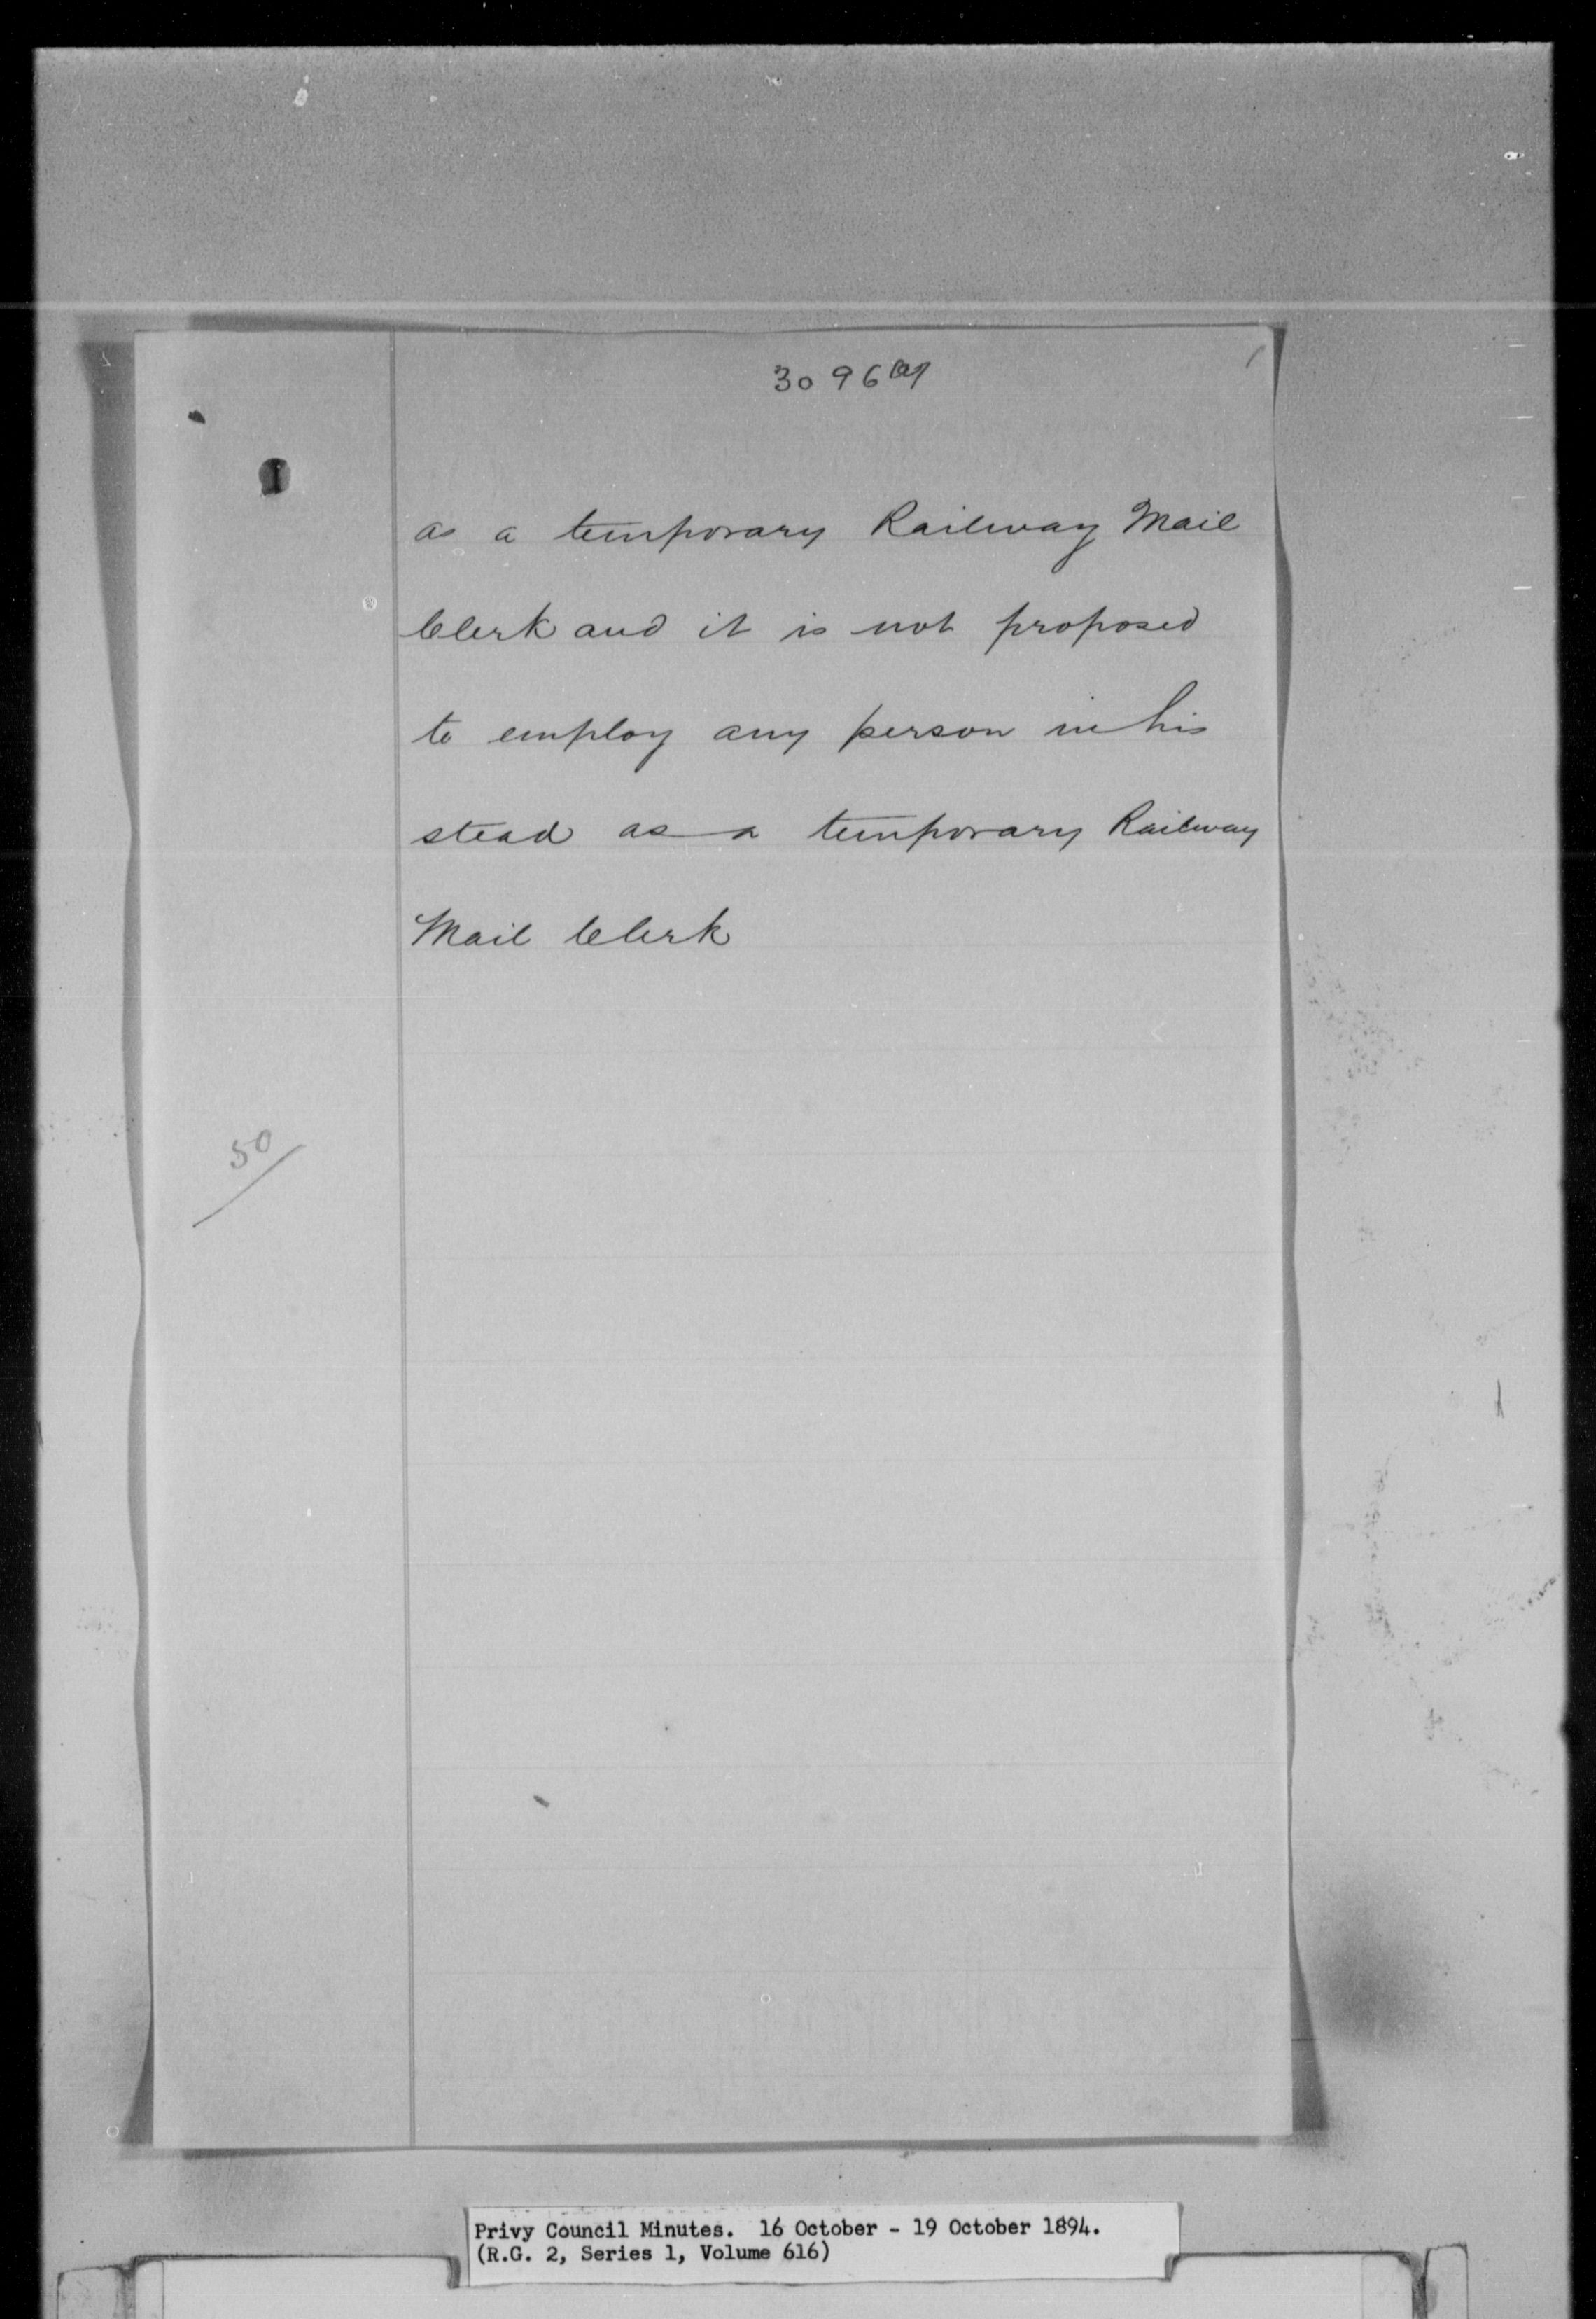 3096
as a temporary Railway Mail
Clerk and it is not proposed
to employ any person in his
stead as a temporary Railway
Mail Clerk
50
Privy Council Minutes. 16 October - 19 October 1894.
(R.G. 2, Series 1, Volume 616)